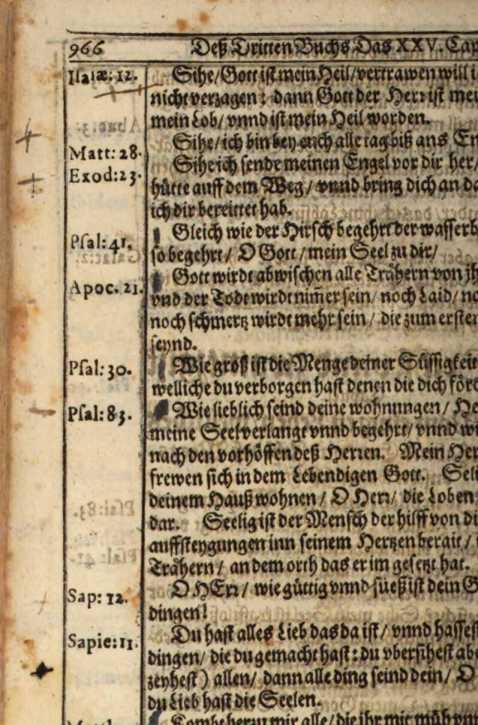 966 Deß Dritten Buchs Das XXV. Cap
Isaiæ: 12. Sihe/ Gott ist mein Heil/ vertrawen will i
nicht verzagen: dann Gott der Herr ist mei
mein Lob/ vnnd ist mein Heil worden.
Sihe/ ich bin bey euch alle tag biß ans En
Matt: 28.
Exod: 23. Sihe ich sende meinen Engel vor dir her/
hütte auff dem Weg/ vnnd bring dich an da
ich dir bereittet hab.
Gleich wie der Hirsch begehrt der wasserb
Psal: 41. so begehrt/ O Gott/ mein Seel zu dir/
Gott wirdt abwischen alle Trähern von jh
Apoc. 21. vnd der Todt wirdt nim̃er sein/ noch Laid/ no
noch schmertz wirdt mehr sein/ die zum ersten
seynd.
Psal: 30. Wie groß ist die Menge deiner Süssigkeit
welliche du verborgen hast denen die dich förc
Psal: 83. Wie lieblich seind deine wohnungen/ He
meine Seel verlangt vnnd begehrt/ vnnd wi
nach den vorhöffen deß Herren. Mein Her
frewen sich in dem Lebendigen Gott. Seli
deinem Hauß wohnen/ O Herr/ die Loben
dar. Seelig ist der Mensch der hilff von di
auffsteygungen inn seinem Hertzen berait/
Trähern/ an dem orth das er im gesetzt hat.
Sap: 12. O HErr/ wie güttig vnnd süeß ist dein G
dingen!
Sapie: 11. Du hast alles Lieb das da ist/ vnnd hassest
dingen/ die du gemacht hast: du vbersihest abe
zeyhest) allen/ dann alle ding seind dein/ O
du Lieb hast die Seelen.
Kombt herzu mir alle/ die ihr mit müh vn